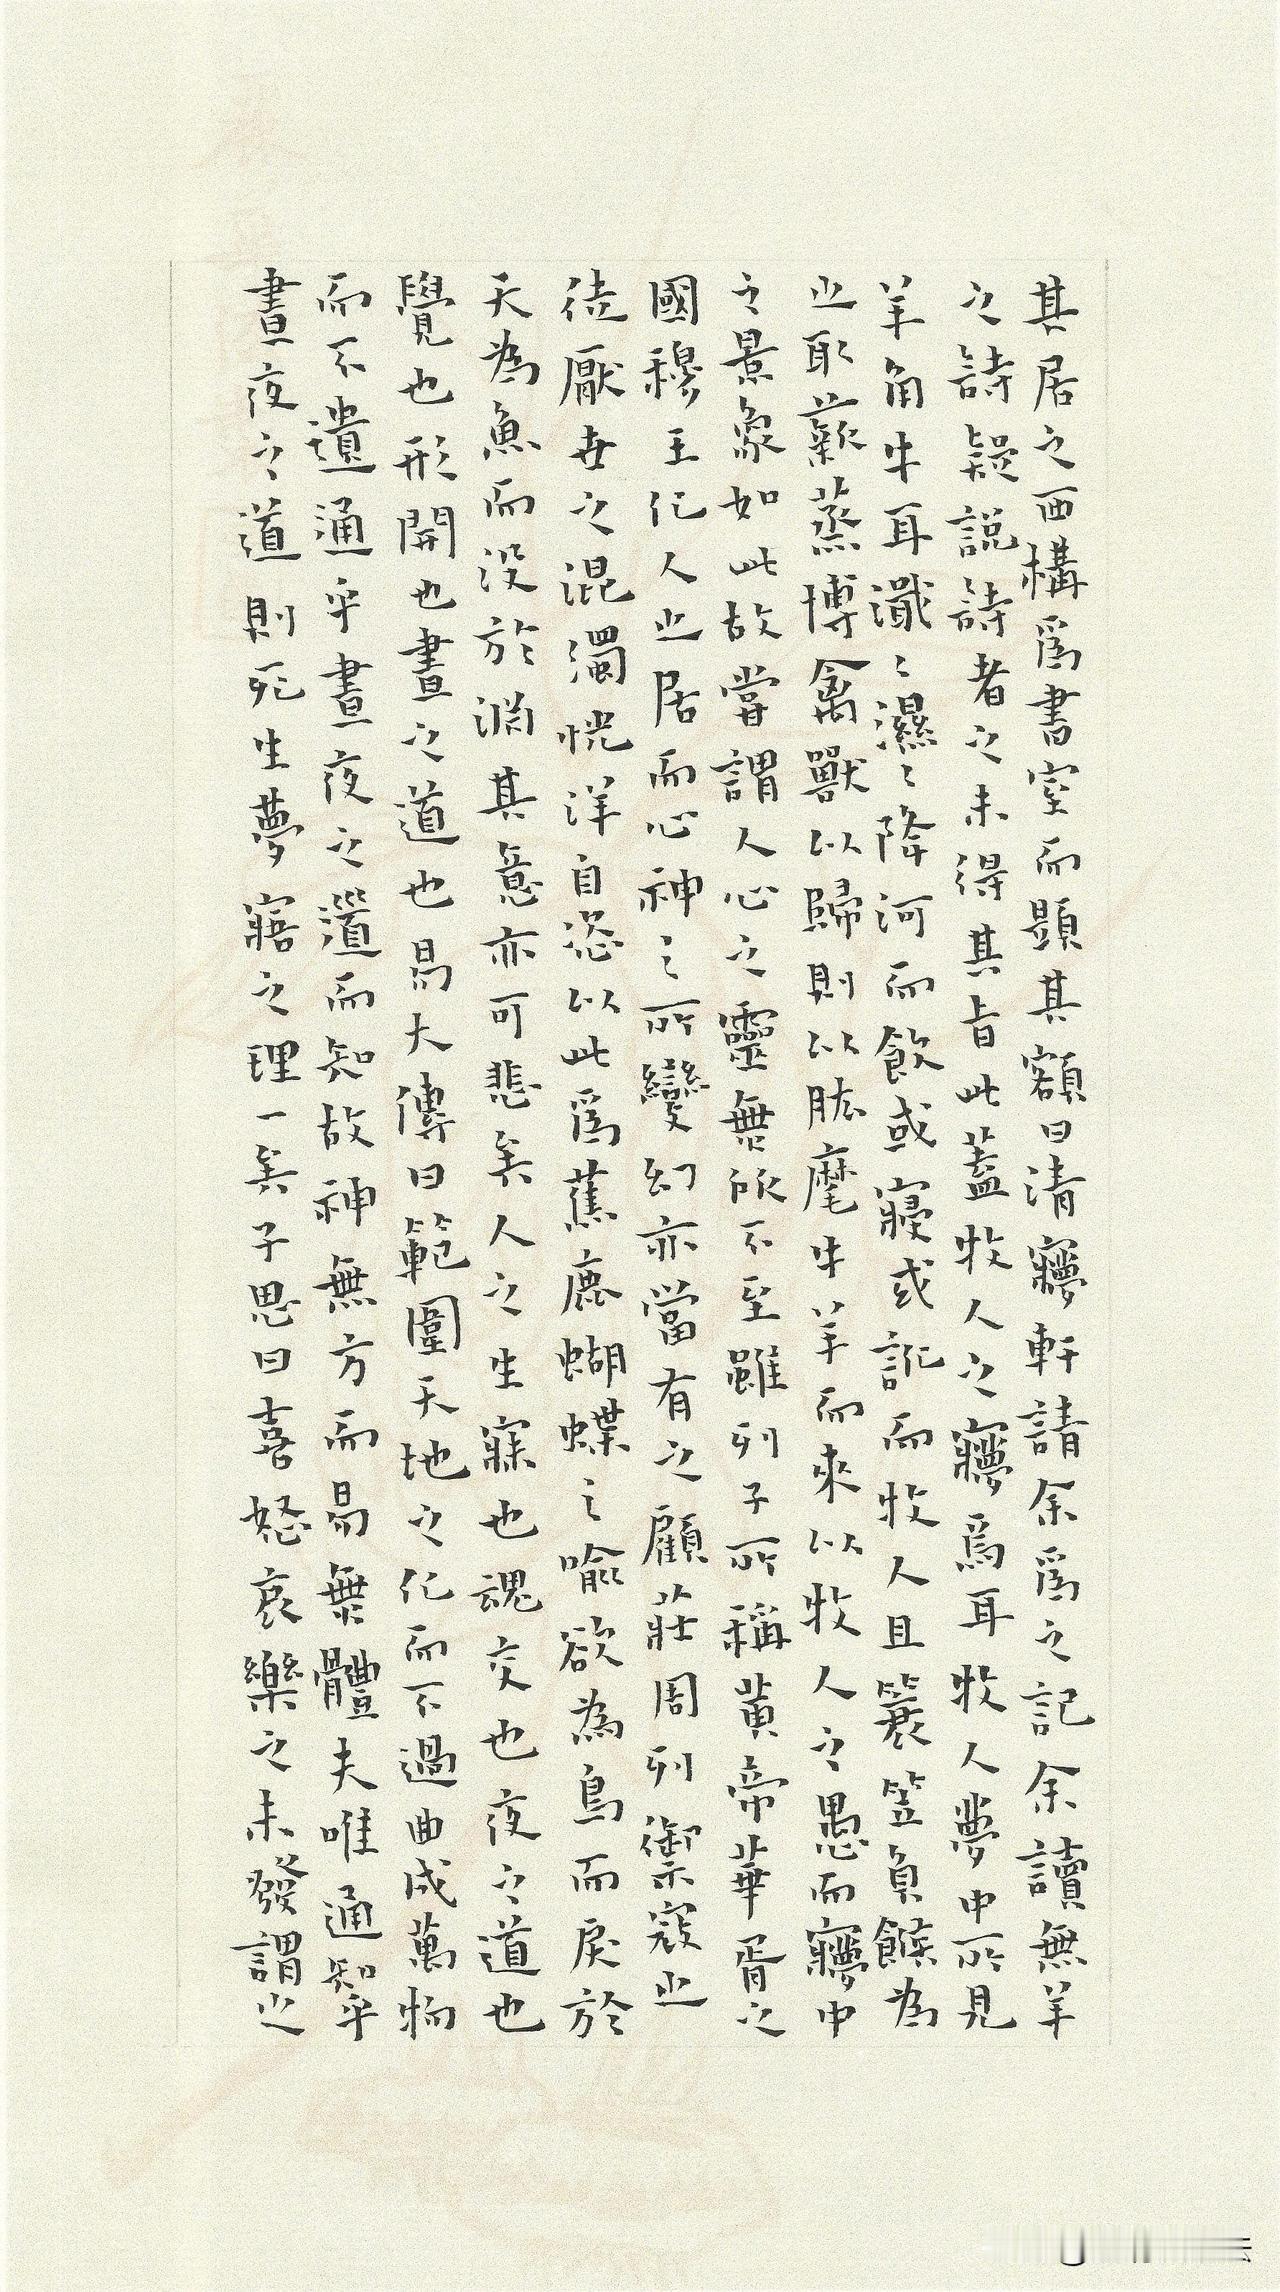 其居之西構爲書室而顕其額曰清㝱軒請余爲之記余讀無羊
之詩疑説詩者之未得其旨此蓋牧人之㝱爲耳牧人夢中所見
羊角牛耳濈〻濕〻降河而飲或寢或訛而牧人且簑笠負餱為
之取薪蒸博禽獸以歸則以肱麾牛羊而來以牧人之愚而㝱中
之景象如此故嘗謂人心之靈無所不至雖列子所稱黃帝華胥之
國穆王化人之居而心神之所變幻亦當有之顧莊周列禦寇之
徒厭世之混濁恍洋自恣以此爲蕉鹿蝴蝶之喻欲為鳥而戾於
天為魚而没於淵其意亦可悲矣人之生寐也魂交也夜之道也
覺也形開也晝之道也易大傳曰範圍天地之化而不過曲成萬物
而不遺通乎晝夜之道而知故神無方而易無體夫唯通知乎
晝夜之道則死生夢寤之理一矣子思曰喜怒哀樂之未發謂之